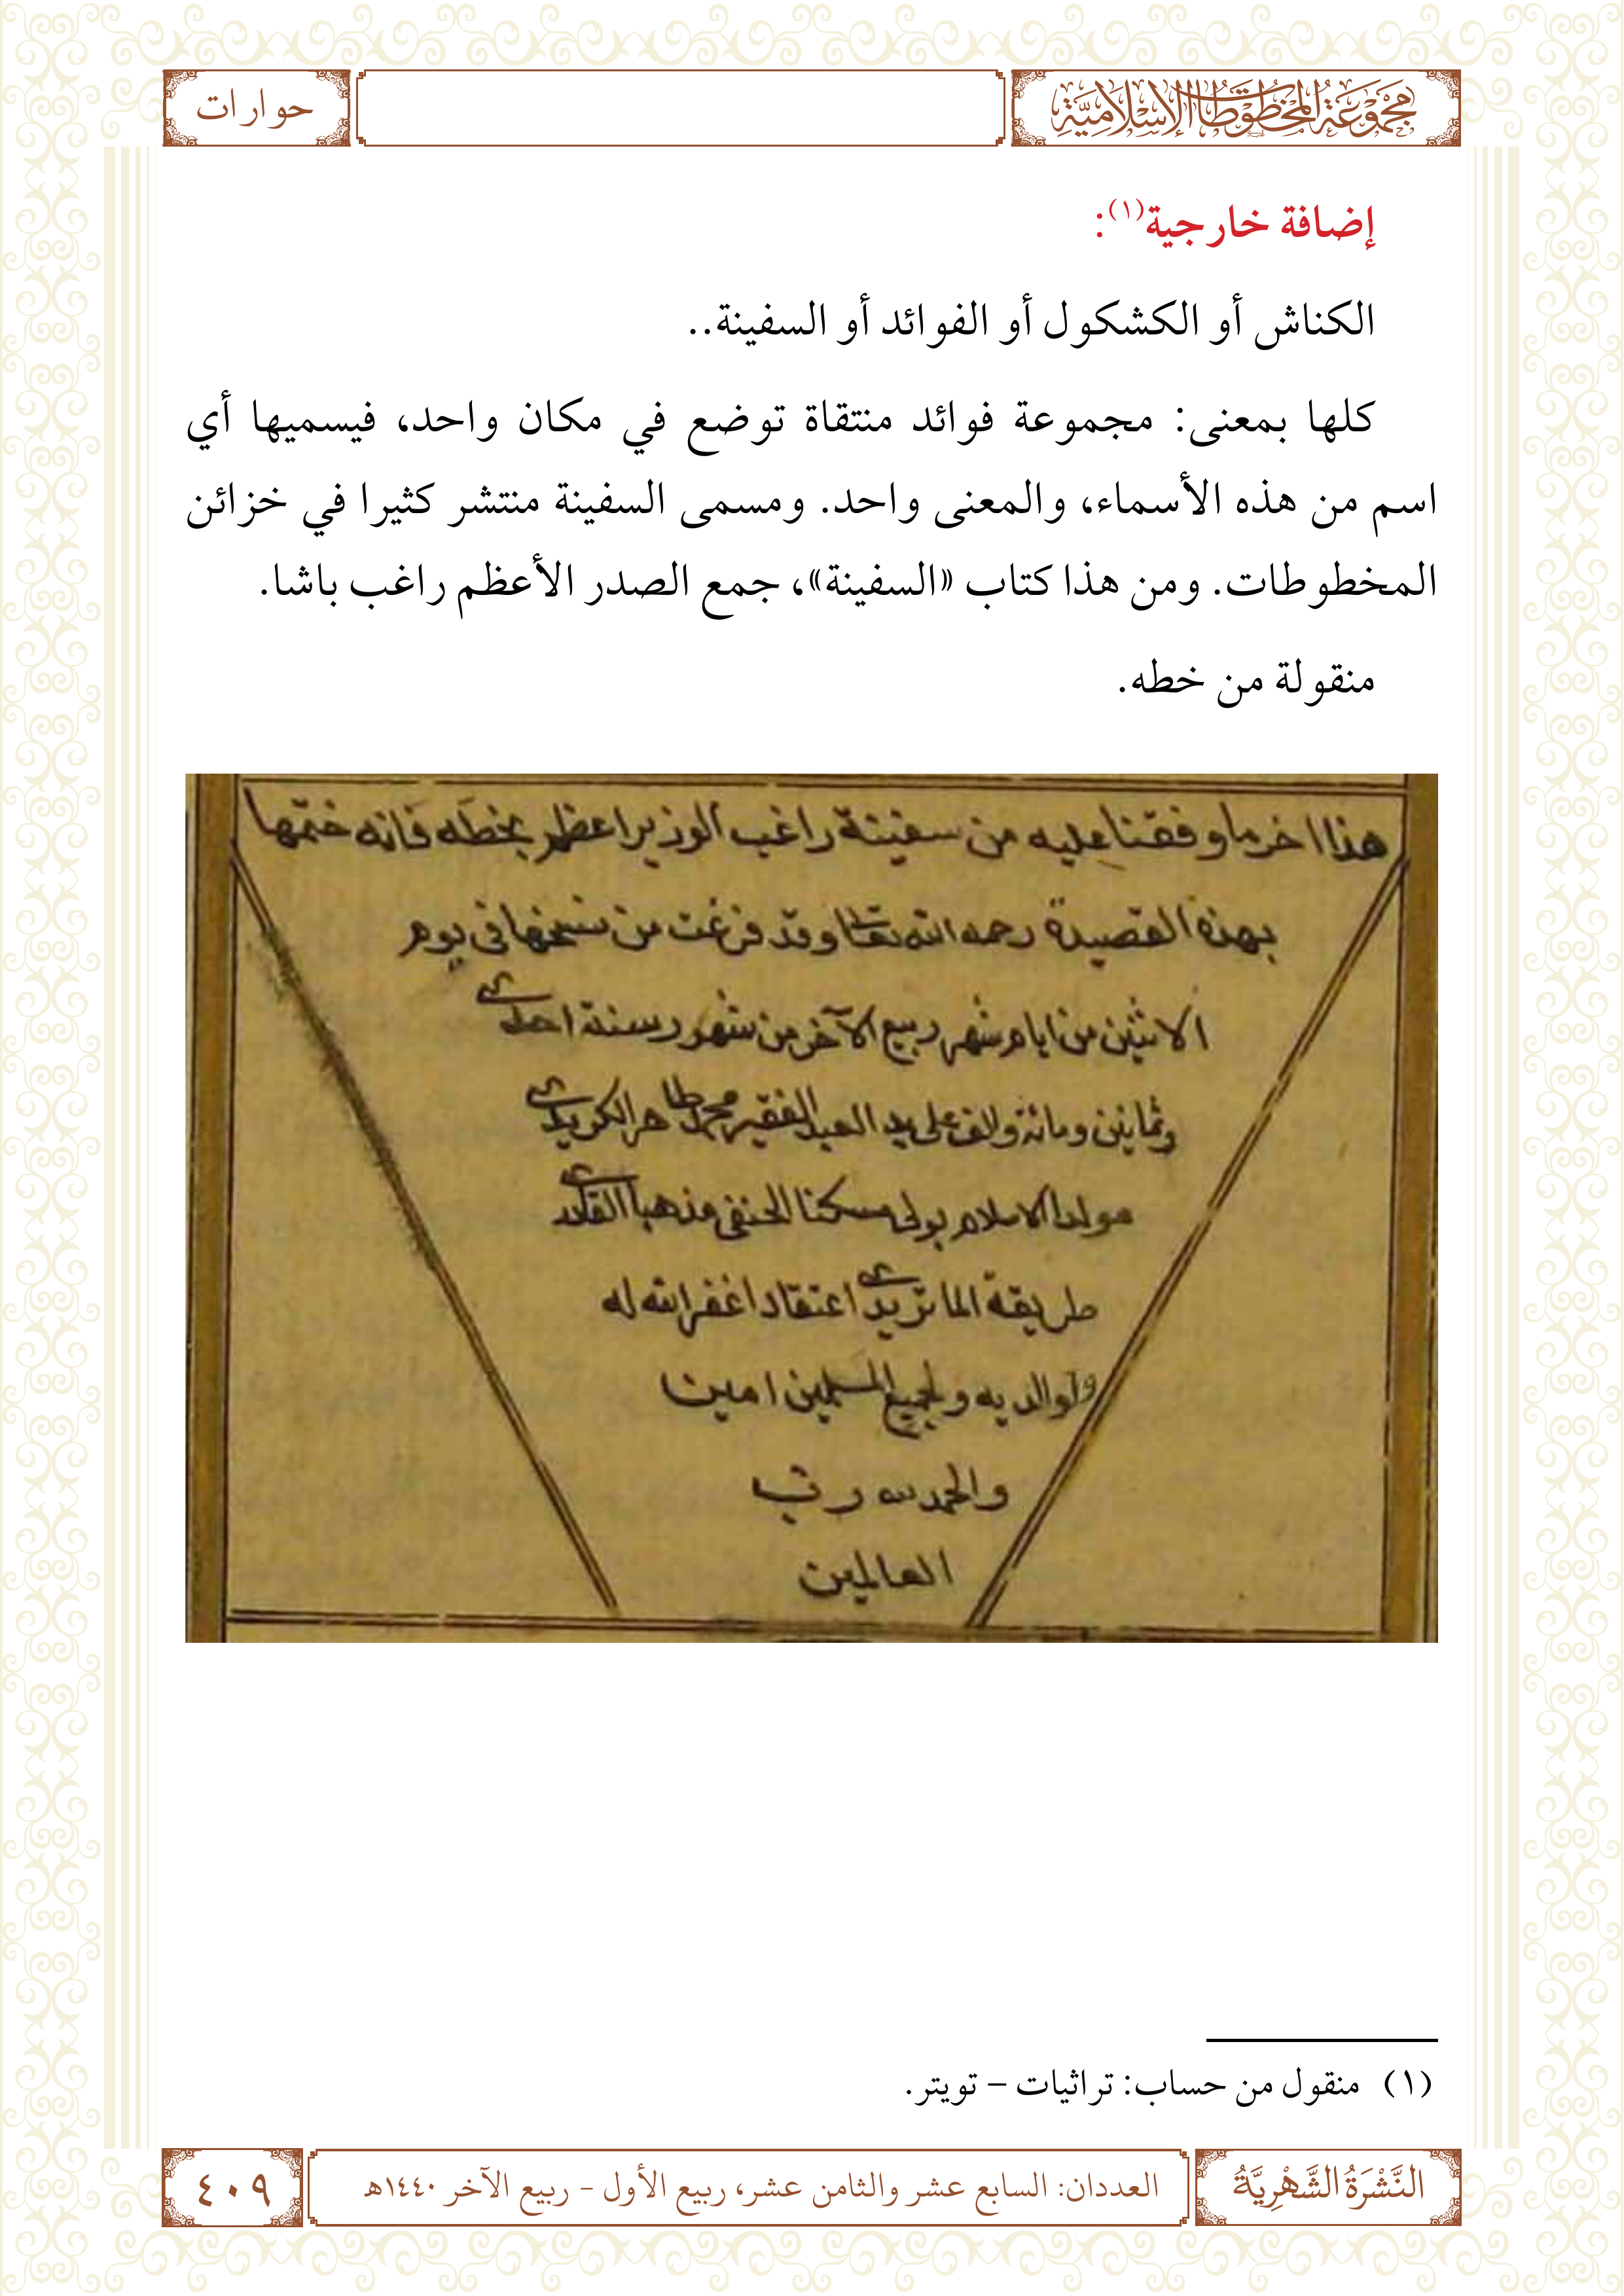 مَجْمُوعَةُ المَخْطُوطَاتِ الإِسْلَامِيَّةِ
حوارات
إضافة خارجية(١):
الكناش أو الكشكول أو الفوائد أو السفينة..
كلها بمعنى: مجموعة فوائد منتقاة توضع في مكان واحد، فيسميها أي
اسم من هذه الأسماء، والمعنى واحد. ومسمى السفينة منتشر كثيرا في خزائن
المخطوطات. ومن هذا كتاب «السفينة»، جمع الصدر الأعظم راغب باشا.
منقولة من خطه.
هذا اخر ما وفقنا عليه من سفينة راغب الوزير اعظم بخطه فانه ختمها
بهذه القصيدة رحمه الله تعا وقد فرغت من نسخها فى يوم
الاثنين من ايام شهر ربيع الآخر من شهور سنة احدى
وثمانين ومائة والف على يد العبد الفقير محمد طاهر الكريدى
مولدا الاسلامبولى مسكنا الحنفى مذهبا القادرى
طريقة الماتريدى اعتقادا غفر الله له
ولوالديه ولجميع المسلمين امين
والحمد لله رب
العالمين
(١) منقول من حساب: تراثيات – تويتر.
النَّشْرَةُ الشَّهْرِيَّةُ
العددان: السابع عشر والثامن عشر، ربيع الأول - ربيع الآخر ١٤٤٠هـ
٤٠٩